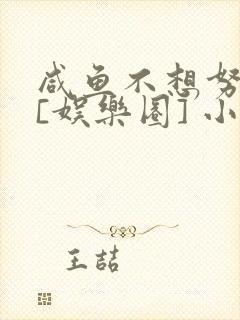 咸鱼不想努
[娱樂圈] 小
王喆